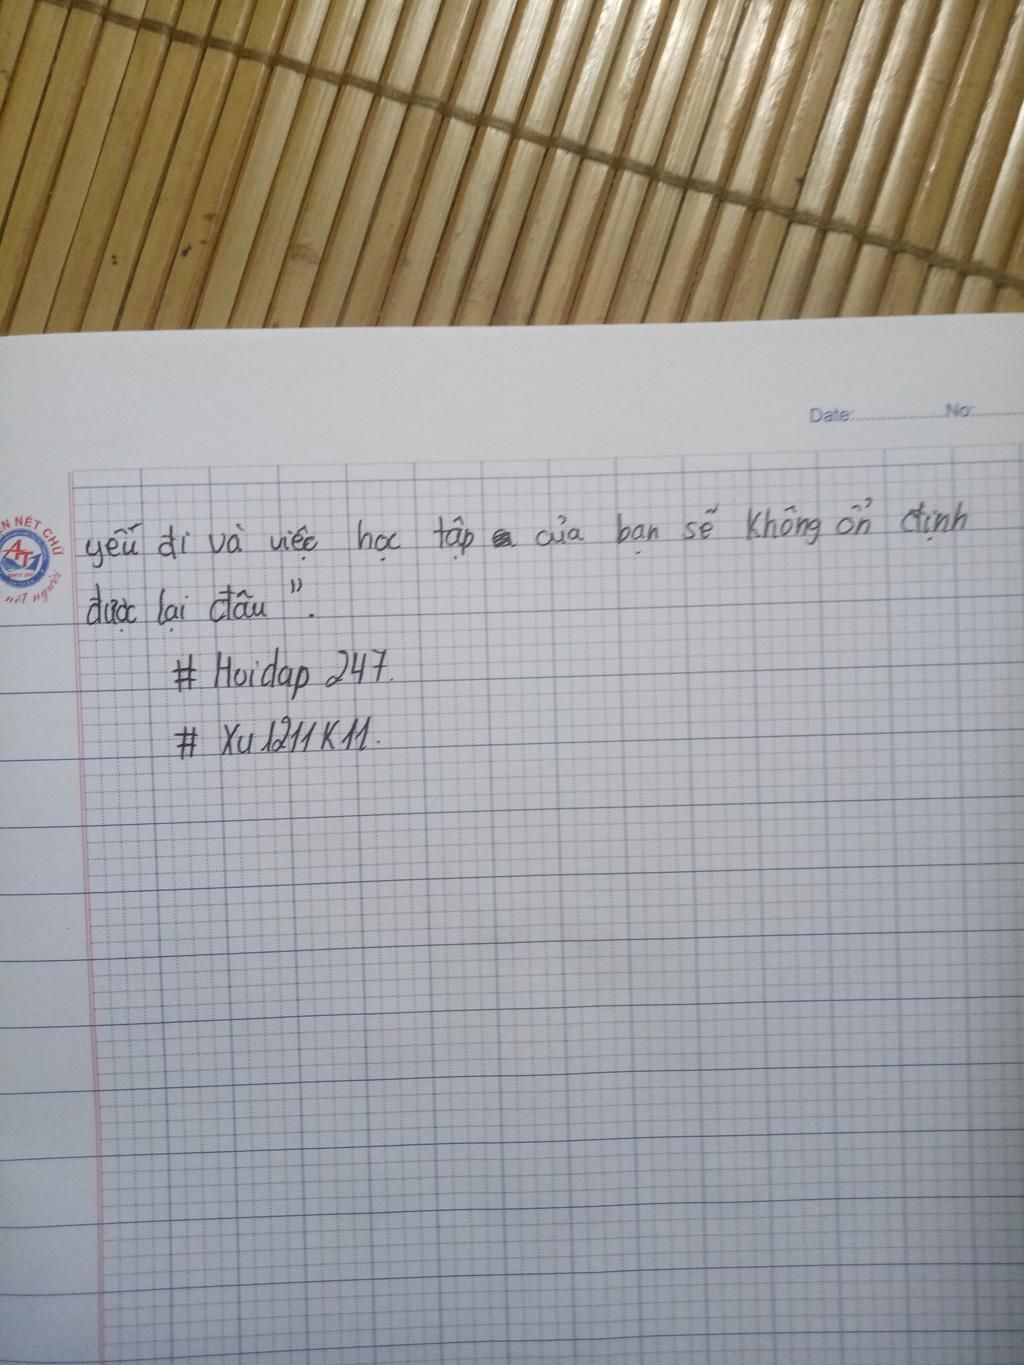 Date:..................No:..........
ÈN NÉT CHỮ
AT
nét người
yếu đi và việc học tập của bạn sẽ không ổn định
được lại đâu".
# Hoidap 247.
# Xu1211K11.